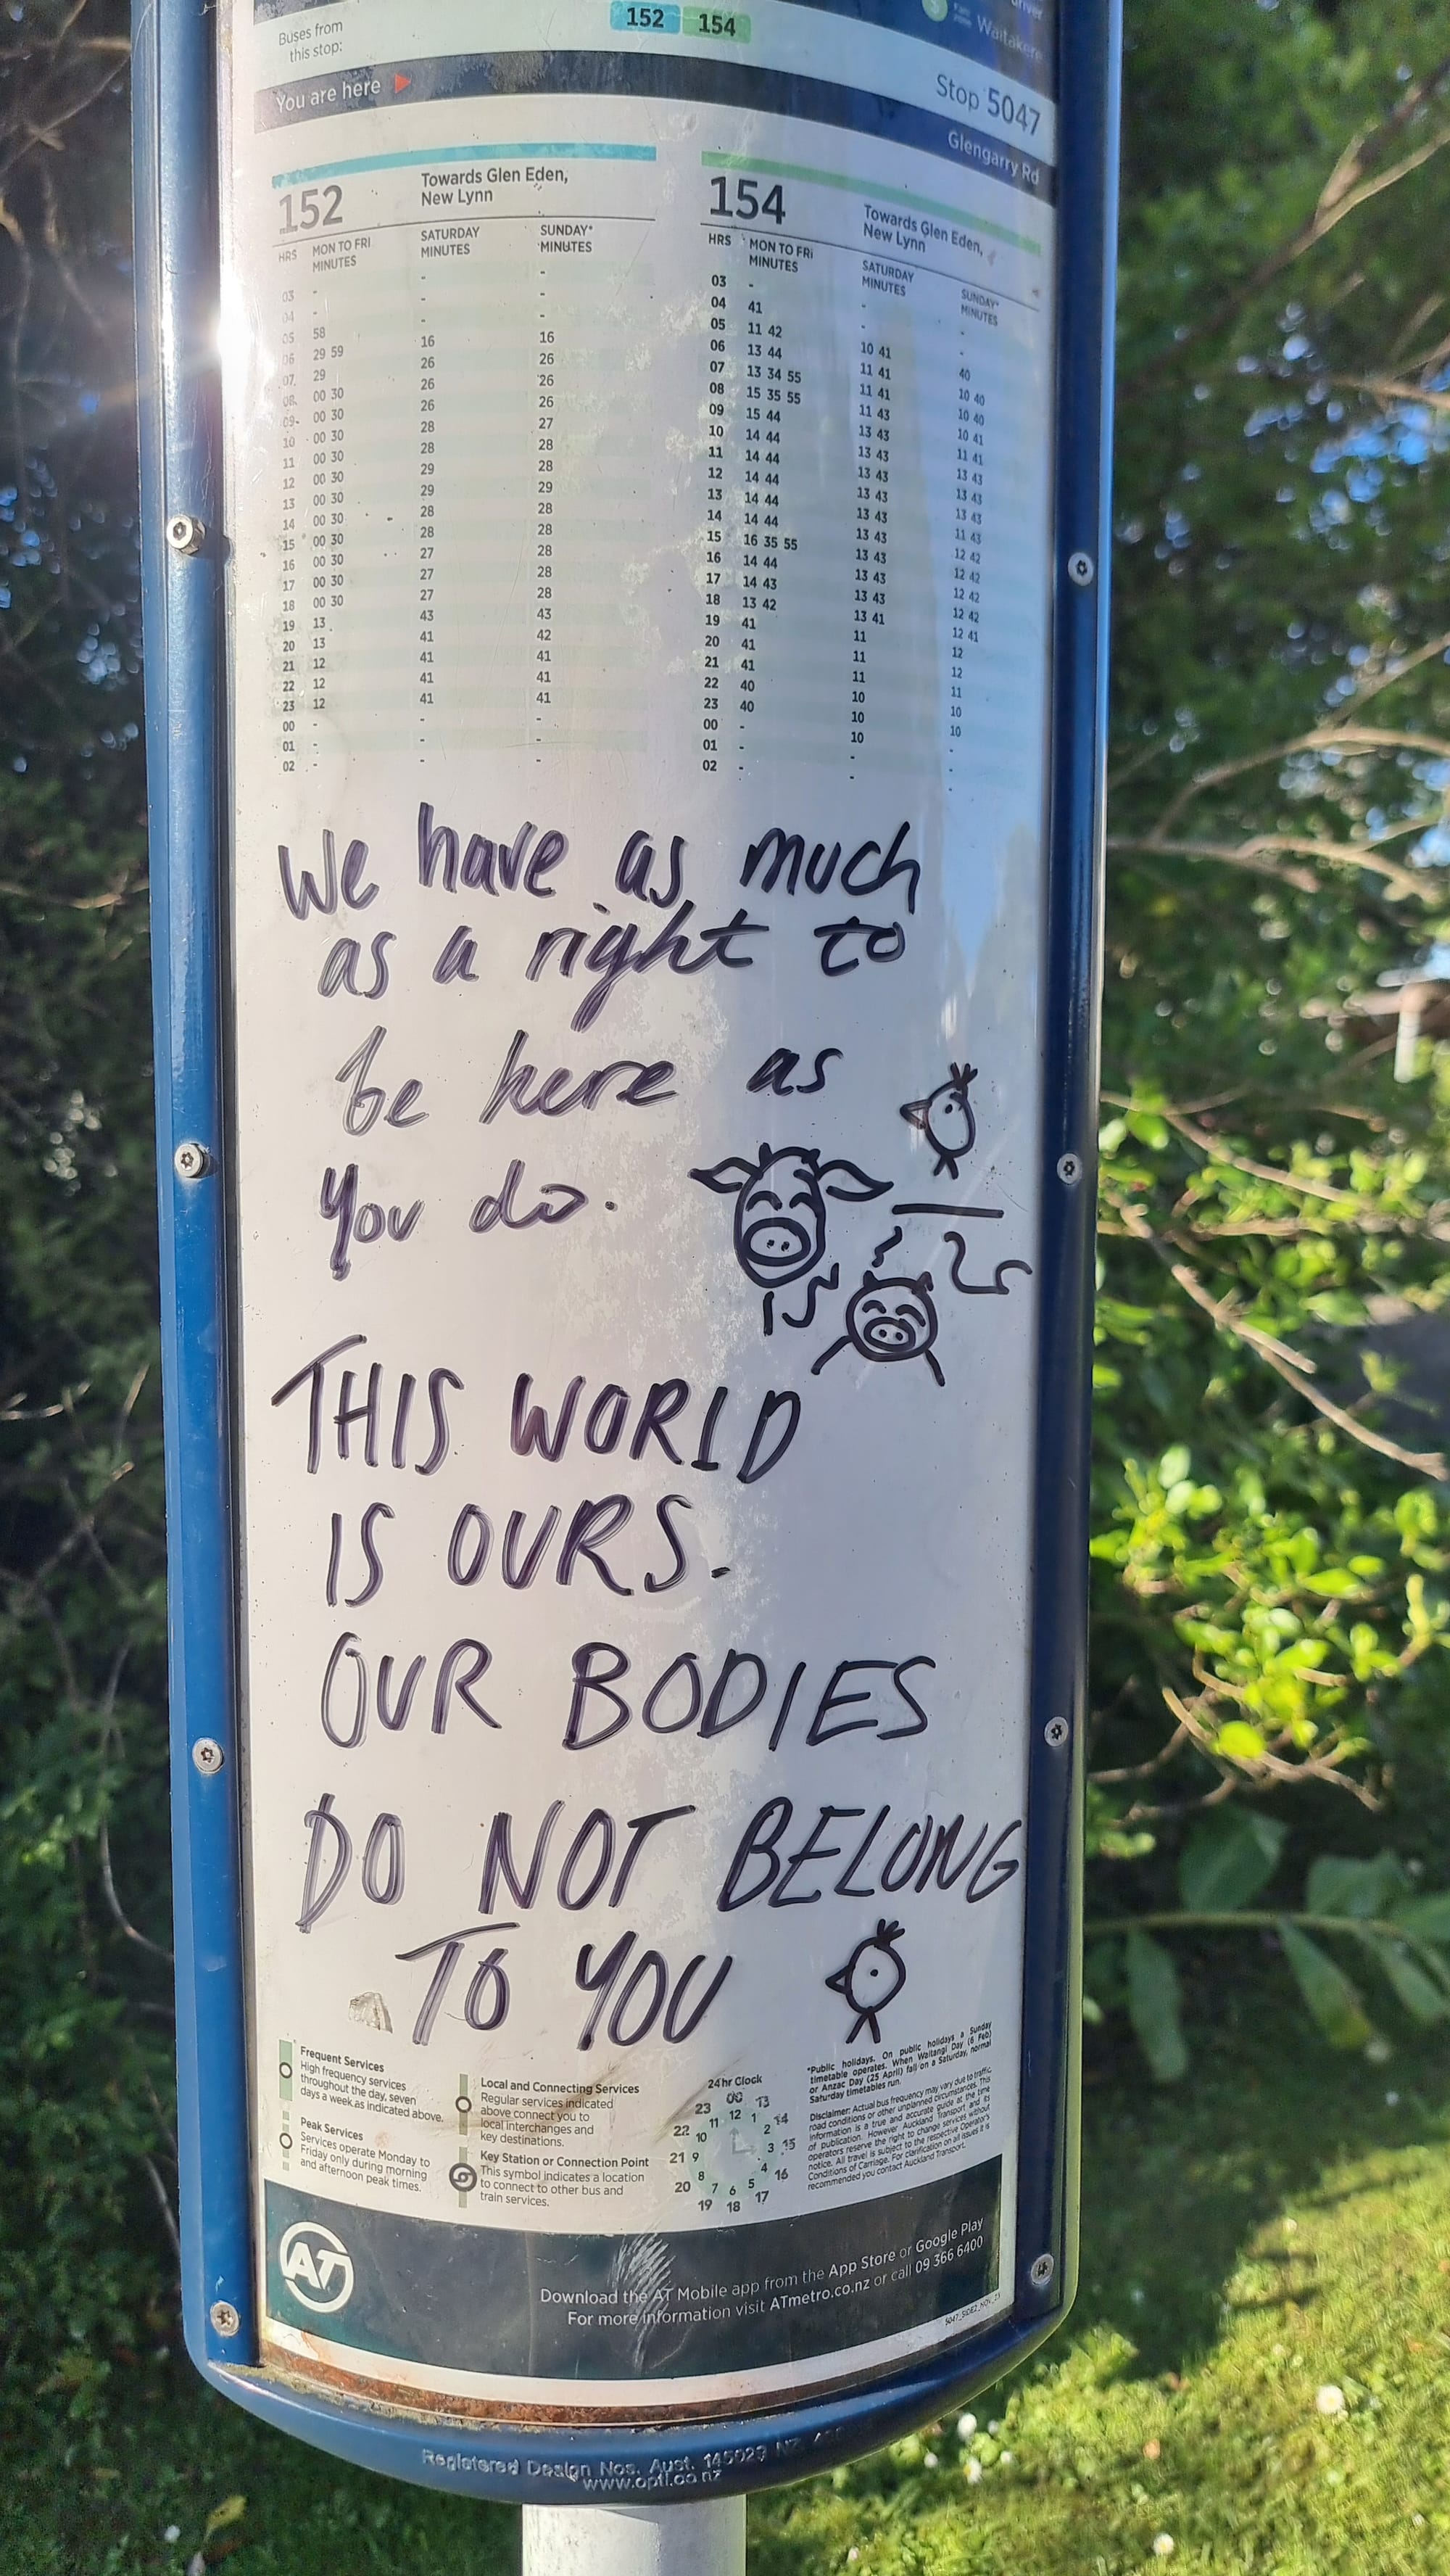 Buses from
this stop:
152 154
Waitakere
You are here
Stop 5047
Glengarry Rd
152 Towards Glen Eden,
New Lynn
HRS MON TO FRI MINUTES SATURDAY MINUTES SUNDAY* MINUTES
03 - - -
04 - - -
05 58 - -
06 29 59 16 16
07 29 26 26
08 00 30 26 26
09 00 30 26 26
10 00 30 28 27
11 00 30 28 28
12 00 30 29 28
13 00 30 29 29
14 00 30 28 28
15 00 30 28 28
16 00 30 27 28
17 00 30 27 28
18 00 30 27 28
19 13 43 43
20 13 41 42
21 12 41 41
22 12 41 41
23 12 41 41
00 - - -
01 - - -
02 - - -
154 Towards Glen Eden,
New Lynn
HRS MON TO FRI MINUTES SATURDAY MINUTES SUNDAY* MINUTES
03 - - -
04 41 - -
05 11 42 10 41 40
06 13 44 11 41 10 40
07 13 34 55 11 41 10 40
08 15 35 55 11 43 10 41
09 15 44 13 43 11 41
10 14 44 13 43 13 43
11 14 44 13 43 13 43
12 14 44 13 43 13 43
13 14 44 13 43 11 43
14 14 44 13 43 12 42
15 16 35 55 13 43 12 42
16 14 44 13 43 12 42
17 14 43 13 43 12 42
18 13 42 13 41 12 41
19 41 11 12
20 41 11 12
21 41 11 11
22 40 10 10
23 40 10 10
00 - 10 -
01 - - -
02 - - -
We have as much
as a right to
be here as
you do.
THIS WORLD
IS OURS.
OUR BODIES
DO NOT BELONG
TO YOU
Frequent Services
High frequency services
throughout the day, seven
days a week as indicated above.
Peak Services
Services operate Monday to
Friday only during morning
and afternoon peak times.
Local and Connecting Services
Regular services indicated
above connect you to
local interchanges and
key destinations.
Key Station or Connection Point
This symbol indicates a location
to connect to other bus and
train services.
24hr Clock
00 13 14 15 16 17 18 19 20 21 22 23
12 1 2 3 4 5 6 7 8 9 10 11
*Public holidays. On public holidays a Sunday
timetable operates. When Waitangi Day (6 Feb)
or Anzac Day (25 April) fall on a Saturday, normal
Saturday timetables run.
Disclaimer: Actual bus frequency may vary due to traffic,
road conditions or other unplanned circumstances. This
information is a true and accurate guide at the time
of publication. However Auckland Transport and its
operators reserve the right to change services without
notice. All travel is subject to the respective Operator's
Conditions of Carriage. For clarification on all issues it is
recommended you contact Auckland Transport.
AT
Download the AT Mobile app from the App Store or Google Play
For more information visit ATmetro.co.nz or call 09 366 6400
Registered Design Nos. Aust. 145029 NZ
www.opti.co.nz